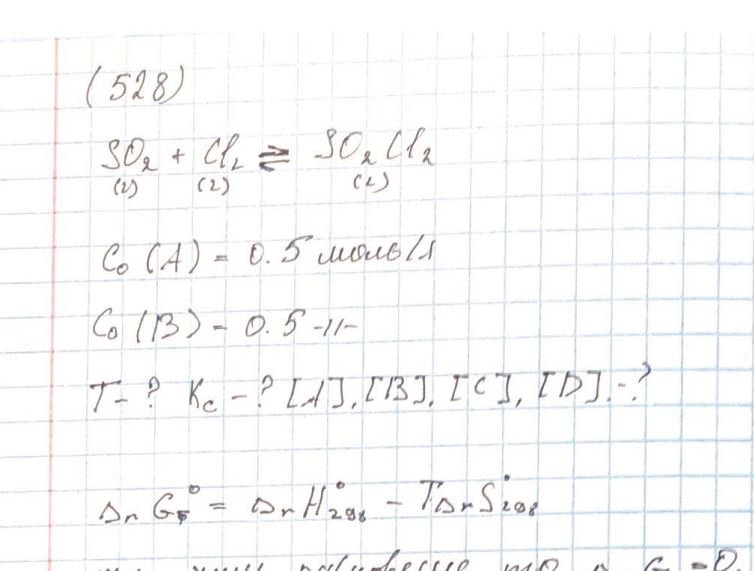 (528)
SO₂ + Cl₂ ⇄ SO₂Cl₂
(г) (г) (г)
C₀(A) = 0.5 моль/л
C₀(B) = 0.5 -//-
T - ? Kc - ? [A], [B], [C], [D]. - ?
ΔrG°т = ΔrH°₂₉₈ - TΔrS°₂₉₈
равновесие то Δ G = 0.